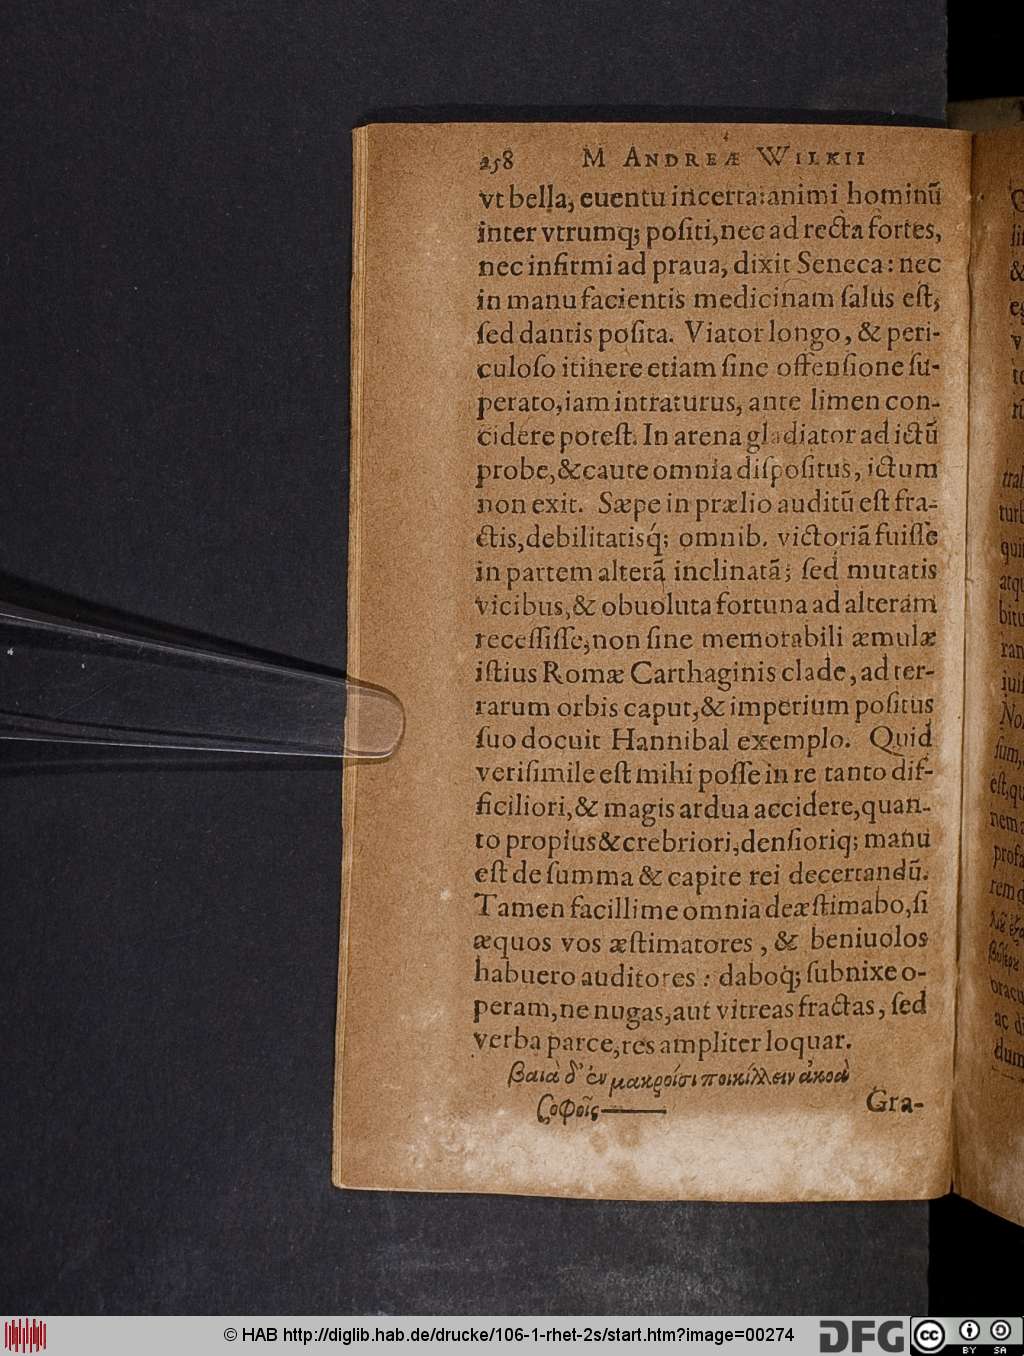 258 M ANDREÆ WILKII
vt bella, euentu incerta: animi hominū
inter vtrumq; poſiti, nec ad recta fortes,
nec infirmi ad praua, dixit Seneca: nec
in manu facientis medicinam ſalus eſt,
ſed dantis poſita. Viator longo, & peri-
culoſo itinere etiam ſine offenſione ſu-
perato, iam intraturus, ante limen con-
cidere poteſt. In arena gladiator ad ictū
probe, & caute omnia diſpoſitus, ictum
non exit. Sæpe in prælio auditū eſt fra-
ctis, debilitatisq́; omnib. victoriā fuiſſe
in partem alterā inclinatā; ſed mutatis
vicibus, & obuoluta fortuna ad alteram
receſſiſſe, non ſine memorabili æmulæ
iſtius Romæ Carthaginis clade, ad ter-
rarum orbis caput, & imperium poſitus
ſuo docuit Hannibal exemplo. Quid
veriſimile eſt mihi poſſe in re tanto dif-
ficiliori, & magis ardua accidere, quan-
to propius & crebriori, denſioriq; manu
eſt de ſumma & capite rei decertandū.
Tamen facillime omnia deæſtimabo, ſi
æquos vos æſtimatores, & beniuolos
habuero auditores: daboq́; ſubnixe o-
peram, ne nugas, aut vitreas fractas, ſed
verba parce, res ampliter loquar.
βαιὰ δ᾽ ἐν μακροῖσι ποικίλλειν ἀκοὰ
σοφοῖς—
Gra-
© HAB http://diglib.hab.de/drucke/106-1-rhet-2s/start.htm?image=00274
DFG
cc BY SA